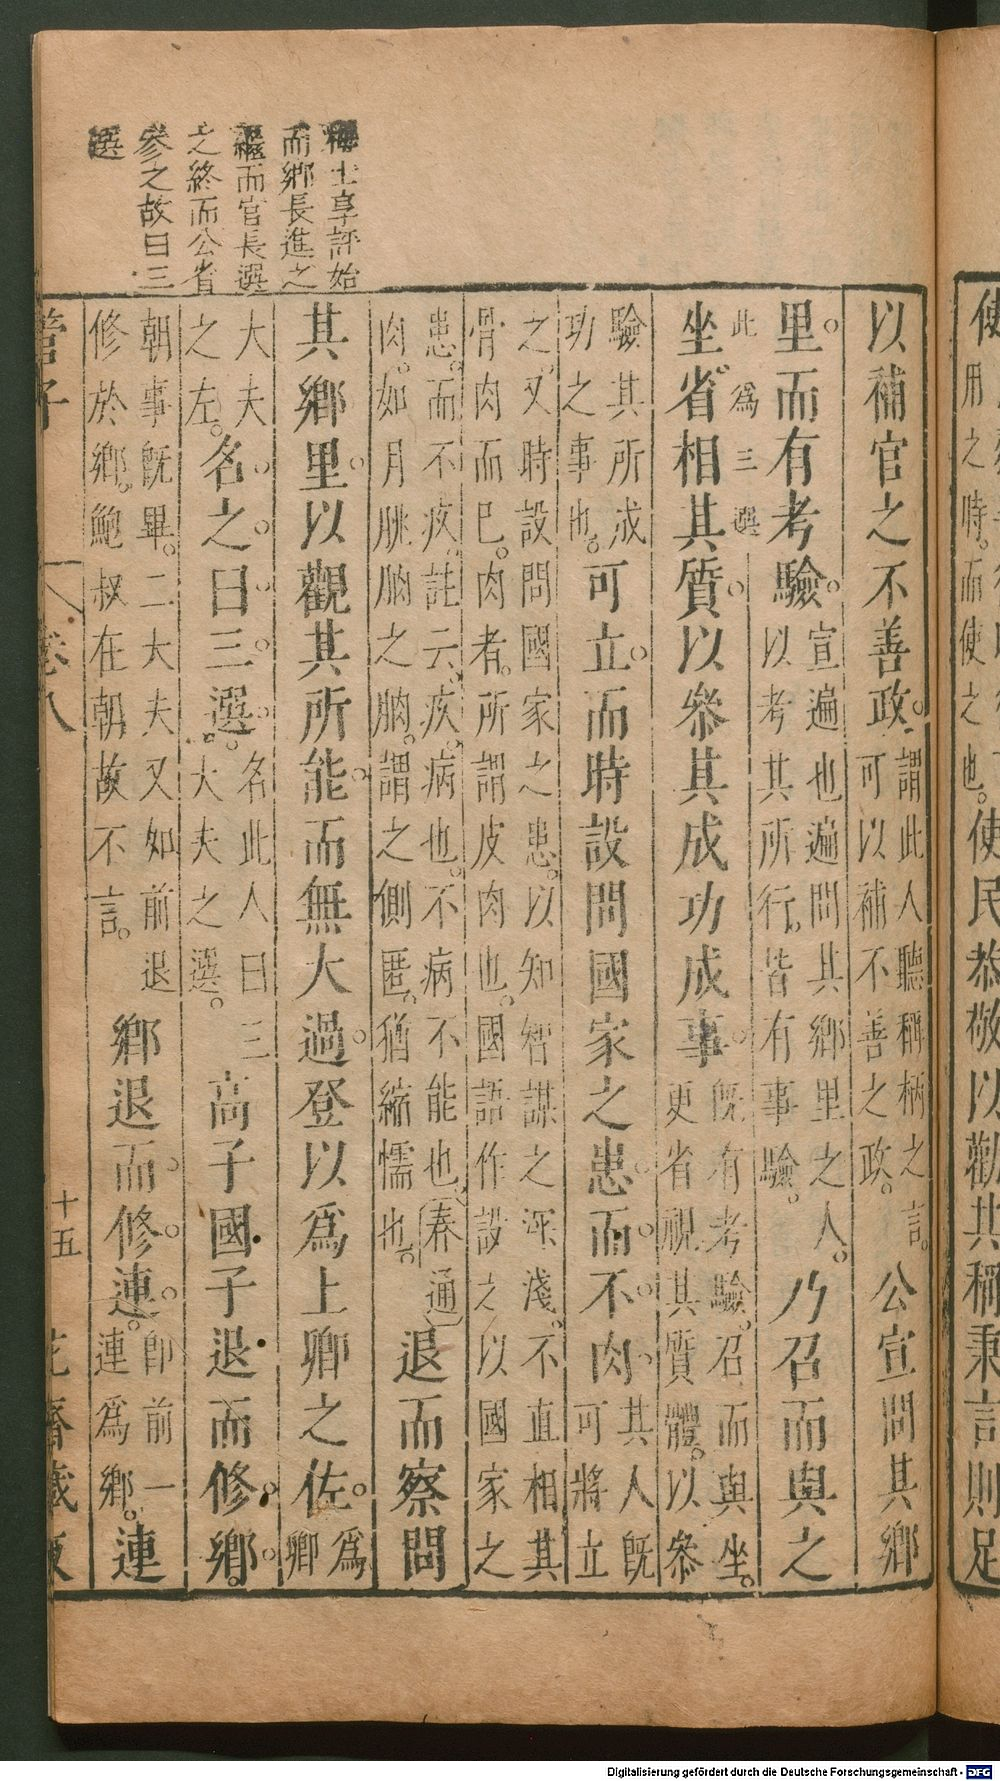 以補官之不善政。謂此人聽稱柄之言。可以補不善之政。公宣問其鄉
里。而有考驗。宣遍也遍問其鄉里之人。以考其所行。皆有事驗。乃召而與之
坐。省相其質。以參其成功成事。既有考驗。召而與坐。更省視其質體。以參
此為三選
驗其所成功之事也。可立而時設問國家之患而不肉。其人既可將立
之。又時設問國家之患。以知智謀之深淺。不直相其骨肉而已。肉者。所謂皮肉也。國語作設之以國家之
患。而不疚。註云。疾。病也。不病不能也。春通肉。如月朓朒之朒。謂之側匿。猶縮懦也。退而察問
其鄉里。以觀其所能。而無大過。登以為上卿之佐。為卿
大夫之左。名之曰三選。名此人曰三大夫之選。高子國子退而修鄉。
朝事既畢。二大夫又如前退修於鄉。鮑叔在朝故不言。鄉退而修連。即前一連為鄉。連
管子
卷八
十五
花齋藏板
士享評始
而鄉長進之
繼而官長選
之終而公省
參之故曰三
選
用之時。而使之也。使民恭敬以勸其稱秉言則足
Digitalisierung gefördert durch die Deutsche Forschungsgemeinschaft - DFG